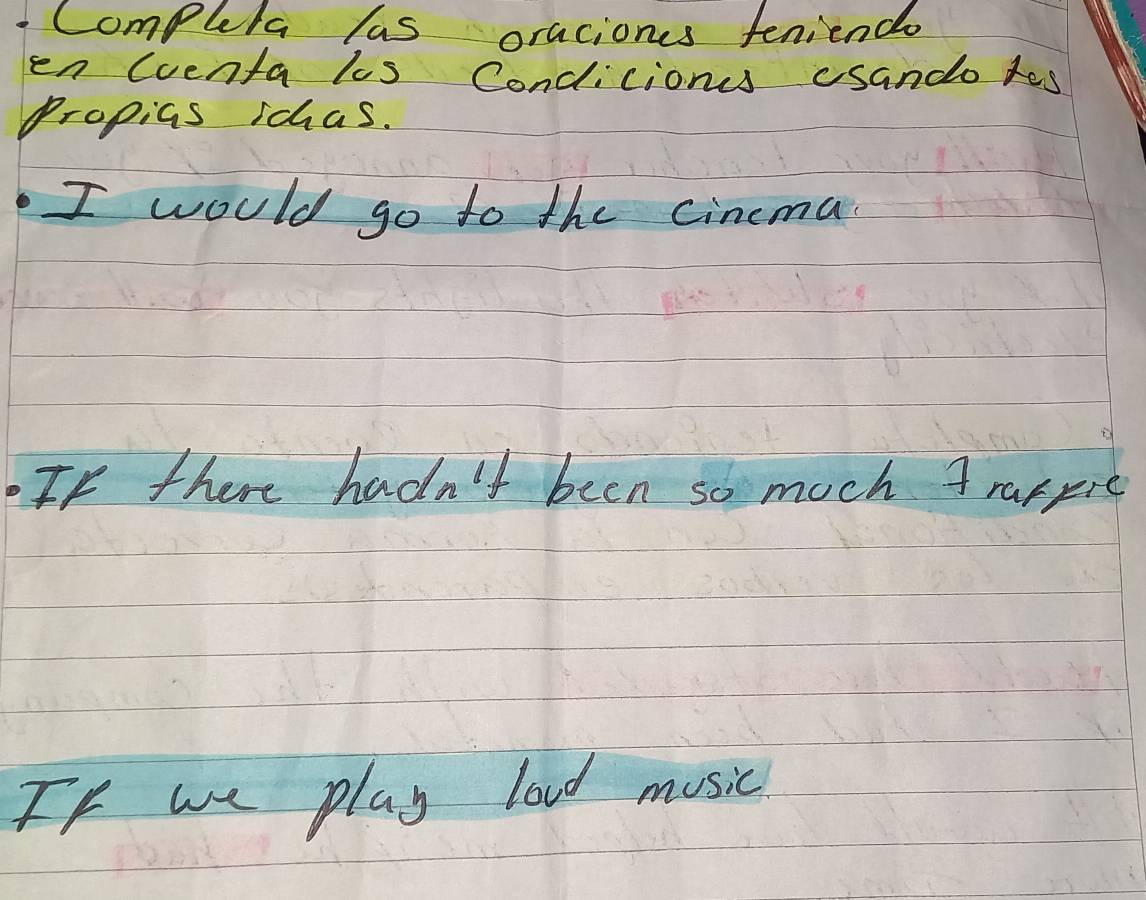 . Completa las oraciones teniendo
en cuenta las Condiciones usando tus
Propias ideas.
• I would go to the cinema.
• If there hadn't been so much traffic
If we play loud music